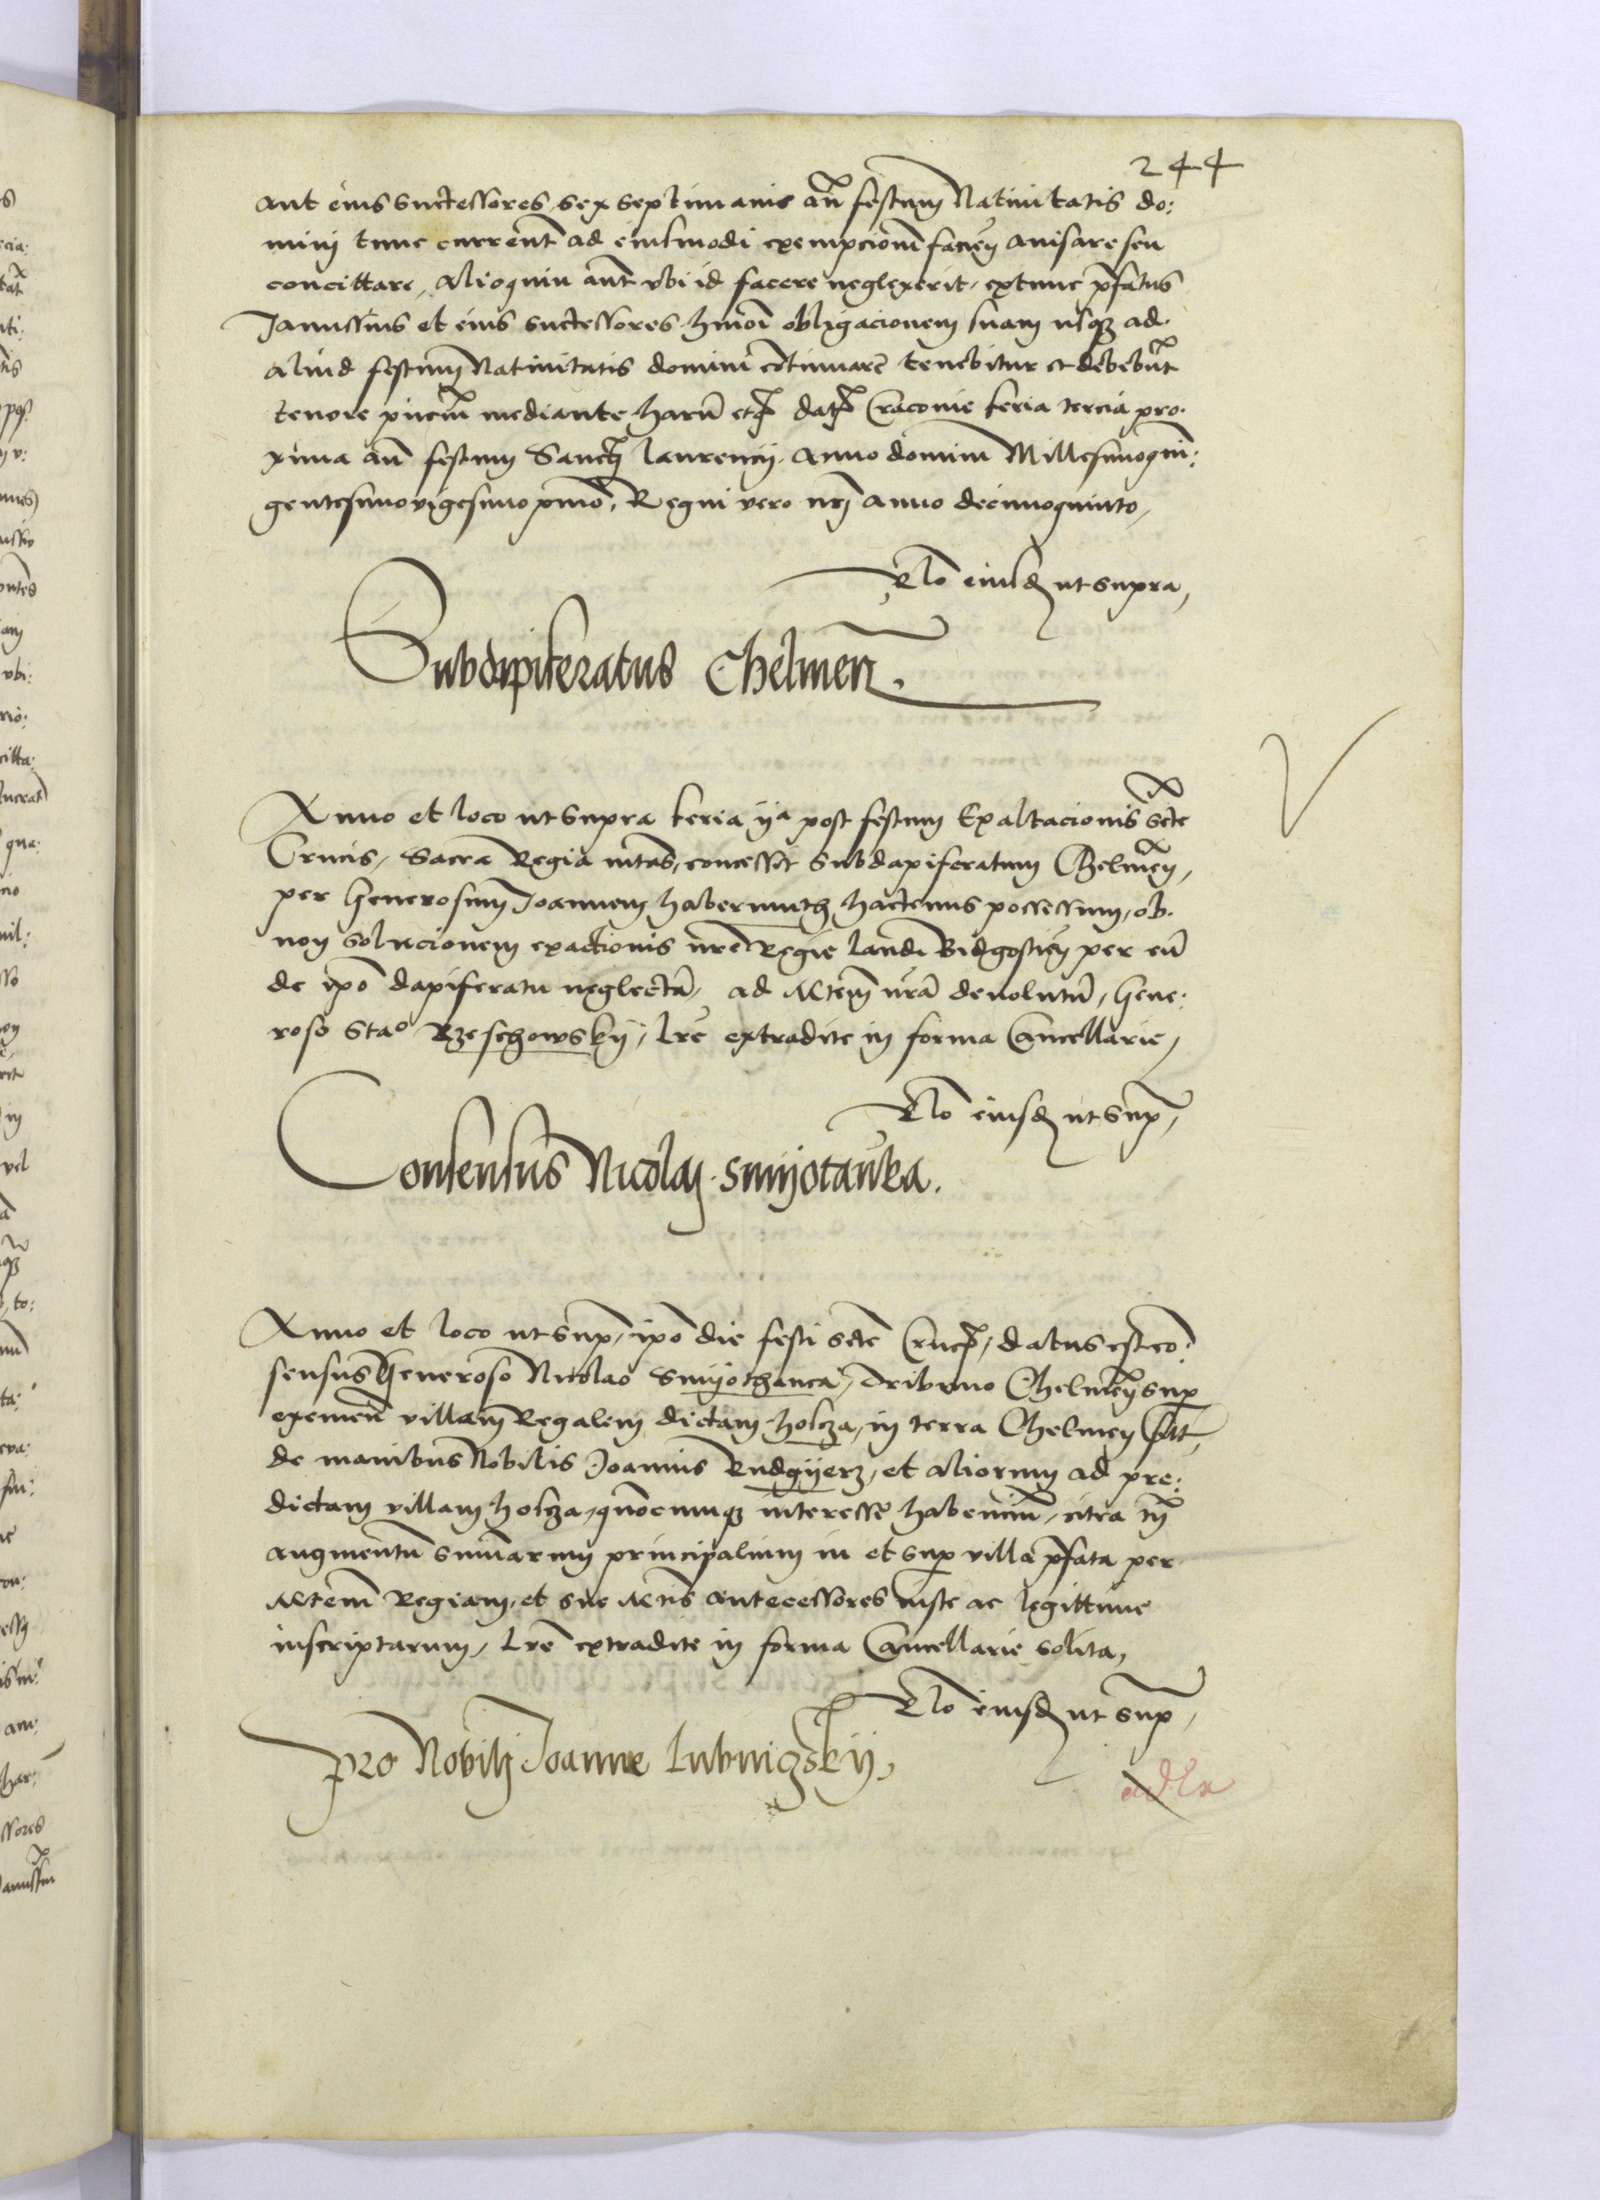 244
aut eius successores sex septimanis an̄ festum Nativitatis do:
mini tunc current̄ ad eiusmodi exempcionem̄ facien̄ avisare seu
concittare, Alioquin aut̄ ubi id facere neglexerit, extunc p̄fatus
Janussius et eius successores hmōi obligacionem suam usq̄ ad
aliud festum Nativitatis domini cōtinuare tenebitur et debebūt
tenore p̄nciū mediante harū etc̄ dat̄ Cracovie feria tercia pro
xima an̄ festum Sancti Laurencij Anno domini Millesimoquin̄:
gentesimovigesimo pmō, Regni vero nr̄i anno decimoquinto,
Rlō eiusd̄ ut supra,
Subdapiferatus Chelmen̄.
Anno et loco ut supra feria ijª post festum Exaltacionis scte
Crucis, Sacra Regia mtas, concessit Subdapiferatum Chelmen̄,
per Generosum Joannem habermuth hactenus possessum, ob
non solucionem exactionis nr̄e Regie laudi Bidgostien̄ per eū
de ip̄o dapiferatu neglectā, ad Mtem̄ nr̄ā devolutū, Gene:
roso Staº Rzeschowskij, lr̄e extradite in forma Cancellarie,
Rlō eiusd̄ ut sup̄,
Consensus Nicolaj Smijotanka.
Anno et loco ut sup̄, ip̄o die festi scte Cruc̄, datus est cō:
sensus Generoso Nicolao Smijothanca, Tribuno Chelmen̄ sup̄
exemen̄ villam̄ Regalem dictam holcza, in terra Chelmen̄ sit̄,
de manibus Nobilis Joannis Rudgijerz, et aliorum ad pre:
dictam villam holcza, quōcumq̄ interesse habenciū, citra tn̄
augmentū sumārum principalium in et sup̄ villa p̄fata per
Mtem̄ Regiam, et sue Mtis antecessores iuste ac legittime
inscriptarum, Lr̄e extradite in forma Cancellarie solita,
Rlō eiusd̄ ut sup̄,
pro Nobilj Joanne Lubniczskij,